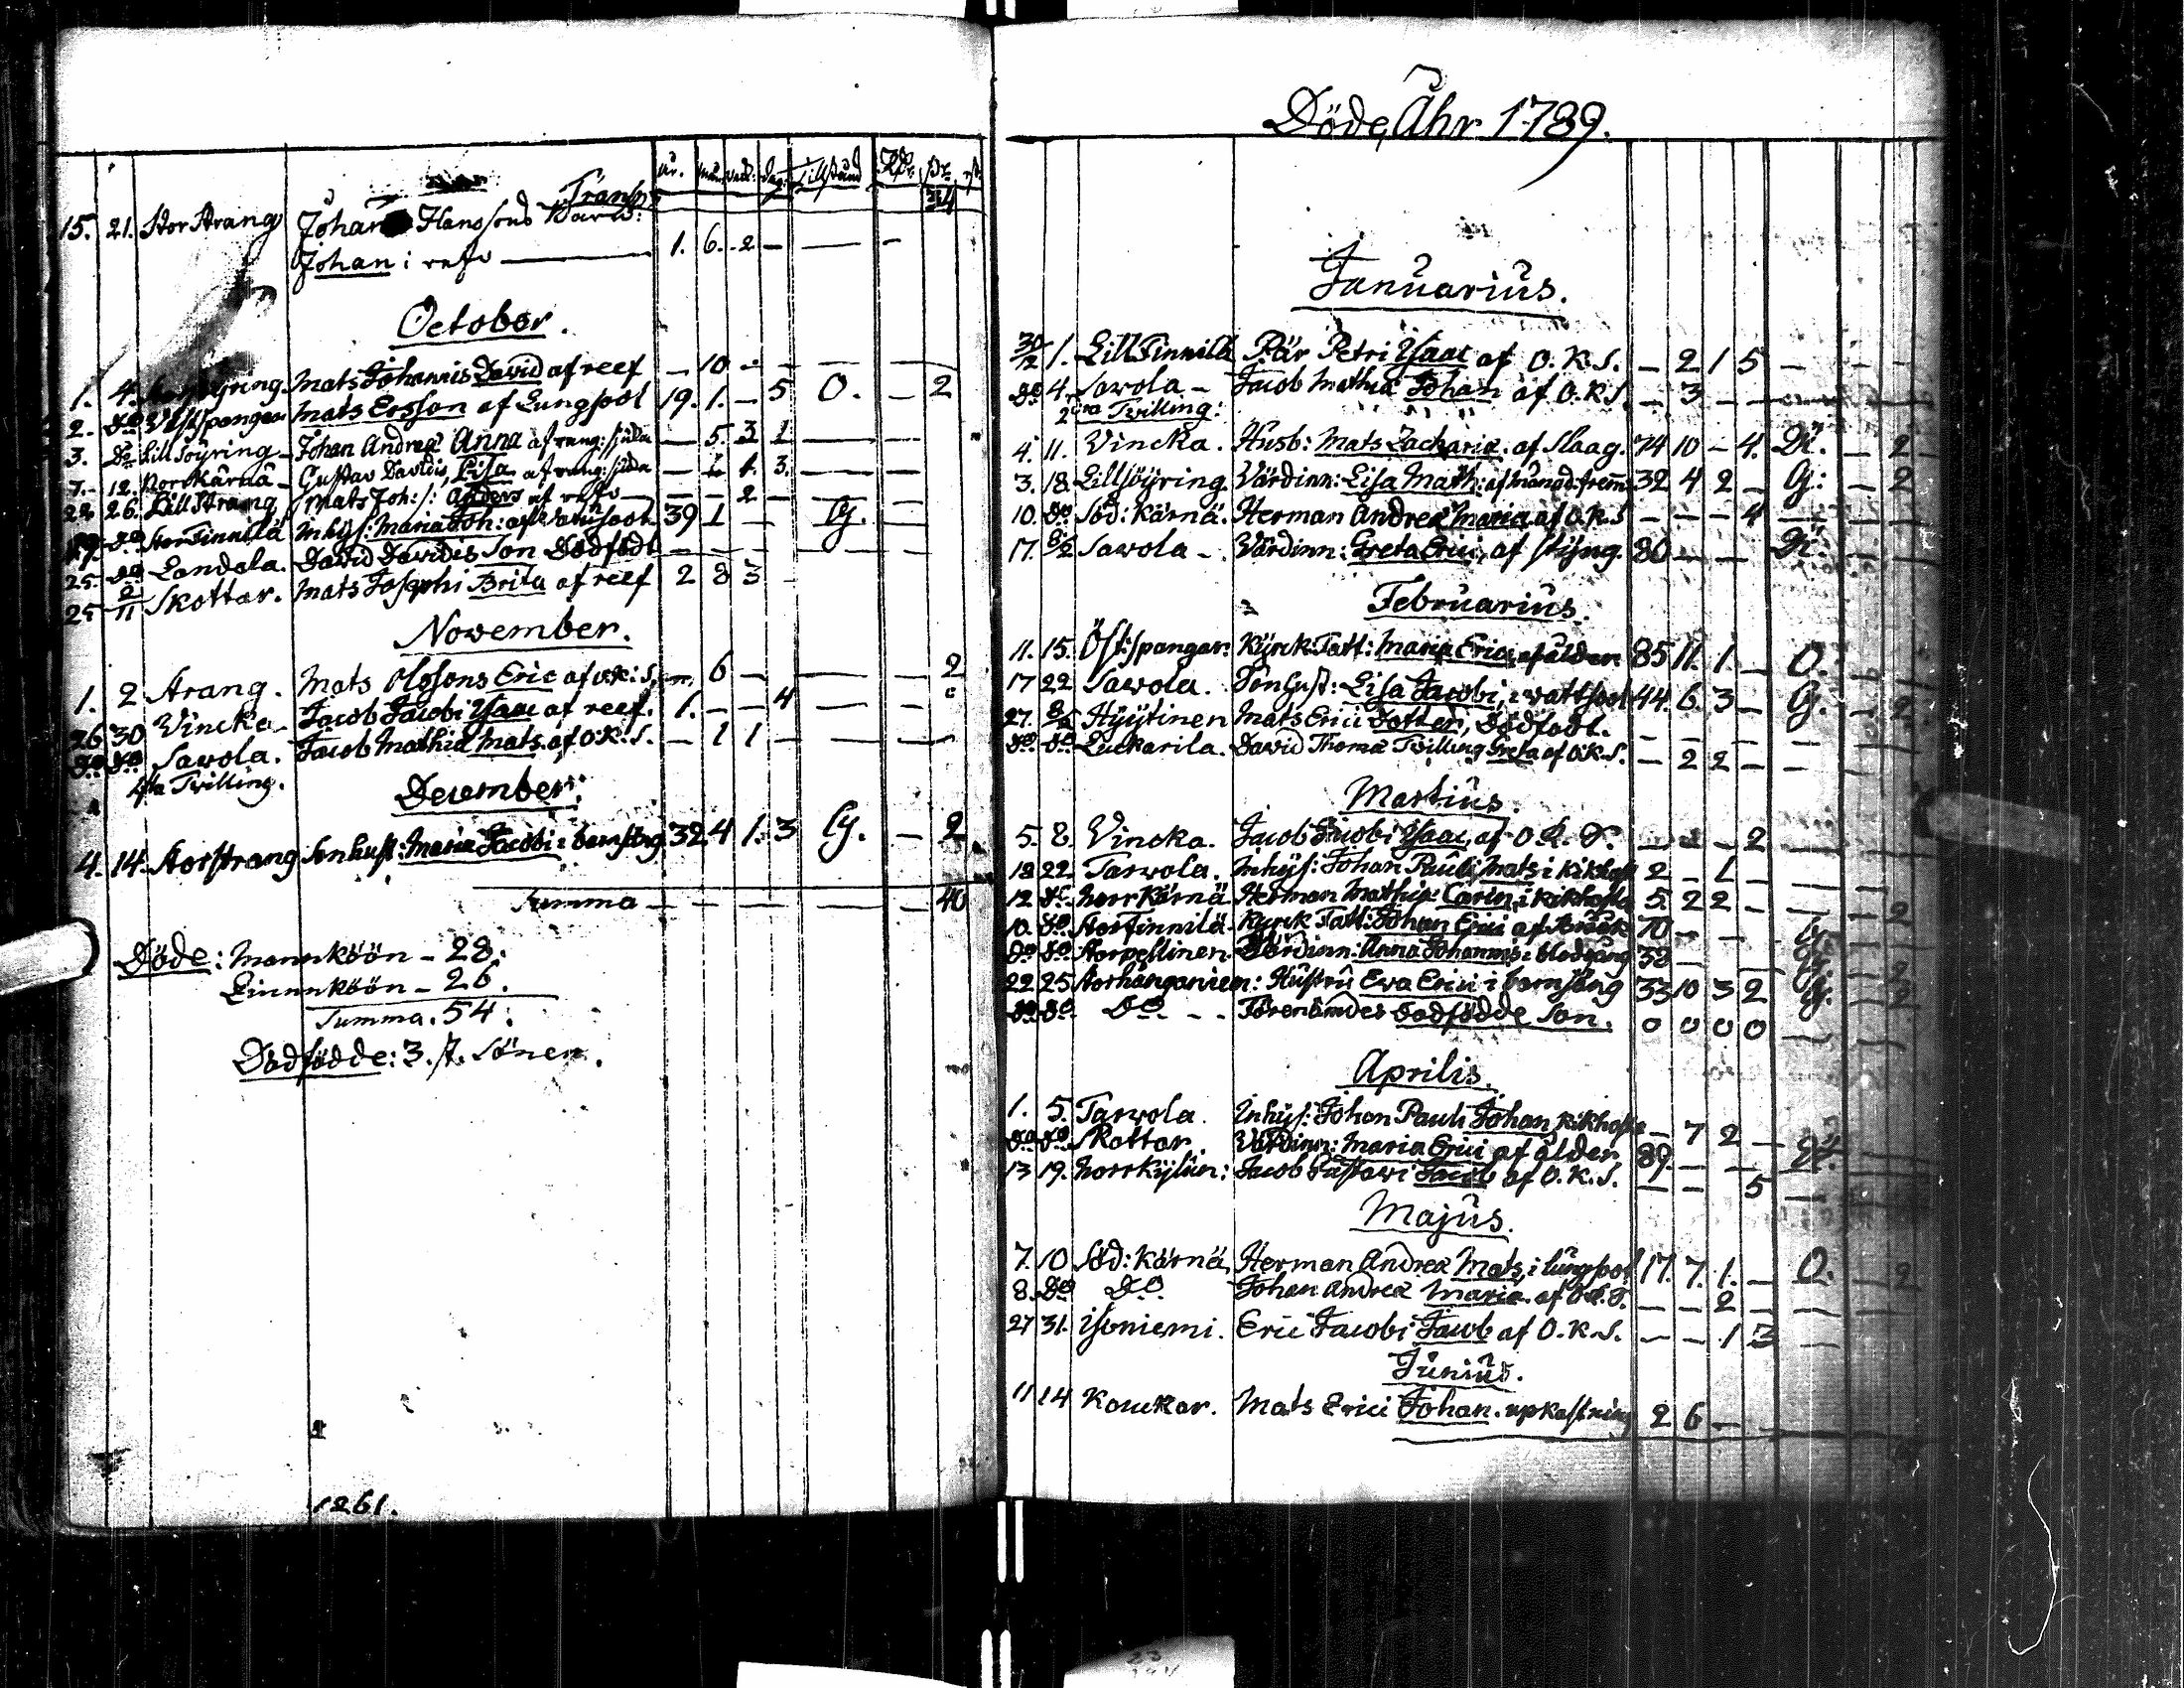 år. mån. veck. dag. Tillstånd Rdr
Transp. 34
15. 21. Stor Strang Johan Hanssons Barn:
Johan i refo 1. 6. 2 — — —
October.
1. 4. Mats Johannis David af reef — 10 — — —
2. Do Mats Ersson af Lungsoot 19. 1. — 5 O. — 2
3. Do Lill Söyring Johan Andreæ Anna af — 5. 3 1 —
7. 12. Norrkärnä Gustav Davidis Lisa af — 1. 3. —
22 26. Lill Strang Mats Joh: s: Anders af refo — — 2 — —
Do Stor Tinnilä Inhys: Maria Joh: af Vattusoot 39 1 — G.
25. Do Landala. David Davidis Son Dödfödt — — — —
25 2/11 Skottar. Mats Josephi Brita af reef 2 8 3 -
November.
1. 2 Strang. Mats Olofsons Eric af o:K:S. — 6 — — 2
26 30 Vincka Jacob Jacobi Isaac af reef. 1. — — 4 —
Do Do Savola. Jacob Mathiæ Mats af O.K.S. — 1 1 — —
1sta Tvilling.
December.
4. 14. Storstrang Sonhust: Maria Jacobi i barnsäng 32. 4 1. 3 G. — 2
Summa — — — — — — 40
Döde: Mannköön - 28.
Qvinnköön - 26.
Summa. 54.
Dödfödde: 3. st. Söner.
1261.
Döde, Åhr 1789.
Januarius.
30/12 1. Lill Tinnilä Pär Petri Isaac af O.K.S. — 2 1 5 —
Do 4. Savola — Jacob Mathiæ Johan af O.K.S. — 3 — — —
2dra Tvilling:
4. 11. Vincka. Husb: Mats Zachariæ af Slaag. 74 10 — 4. — 2
3. 18. Lillsöyring. Värdinn: Lisa Math: af 32 4 2 — G: — 2
10. Do Söd: Kärnä. Herman Andreæ Maria af O.K.S — — — 4 —
17. Savola — Värdinn: Greta Erici, af styng. 80 — —
Februarius.
11. 15. Öst: spangar. Kyrck: Fatt: Maria Erici af ålder 85 11. 1. — O.
17 22 Savola. Sonhust: Lisa Jacobi, i vattsoot 44. 6. 3 — G. — 2
27. Hyytinen Mats Erici Dotter, Dödfödt. — — — — —
Do Do Luckarila. David Thomæ Tvilling Greta af O.K.S. — 2 2 — —
Martius.
5. 8. Vincka. Jacob Jacobi Isaac, af O.K.S. — — — 2 —
18 22. Tarvola. Inhys: Johan Pauli Mats i Kikhosta 2 — 1 —
12 Do Norrkärnä Herman Mathiæ Carin, i Kikhosta 5. 2 2 — — 2
10. Do Storfinnilä. Kyrck Fatt: Johan Erici af Bråck 70 — —
Do Do Storpesinen. Värdinn: Anna Johannis i blodgång 38 — — 2
22. 25 Storhänganien: Hustru Eva Erici i barnsäng 33 10 3 2 G. — 2
Do Do Do - - Förenämdes dödfödde Son. 0 0 0 0 —
Aprilis.
1. 5. Tarvola. Inhys: Johan Pauli Johan, Kikhosta — 7 2 —
Do Do Skottar. Värdinn: Maria Erici af ålder 89. — —
13 19. Norrkylän: Jacob Gustavi Jacob af O.K.S. — — — 5 —
Majus.
7. 10 Söd: Kärnä, Herman Andreæ Mats, i lungsoot 17. 7. 1. — O. — 2
8. Do Do. Johan Andreæ Maria af O.K.S. — — 2 —
27 31. Isoniemi. Eric Jacobi Jacob af O.K.S. — — 1 3 —
Junius.
11 14 Kouckar. Mats Erici Johan. upkastning 2 6 —